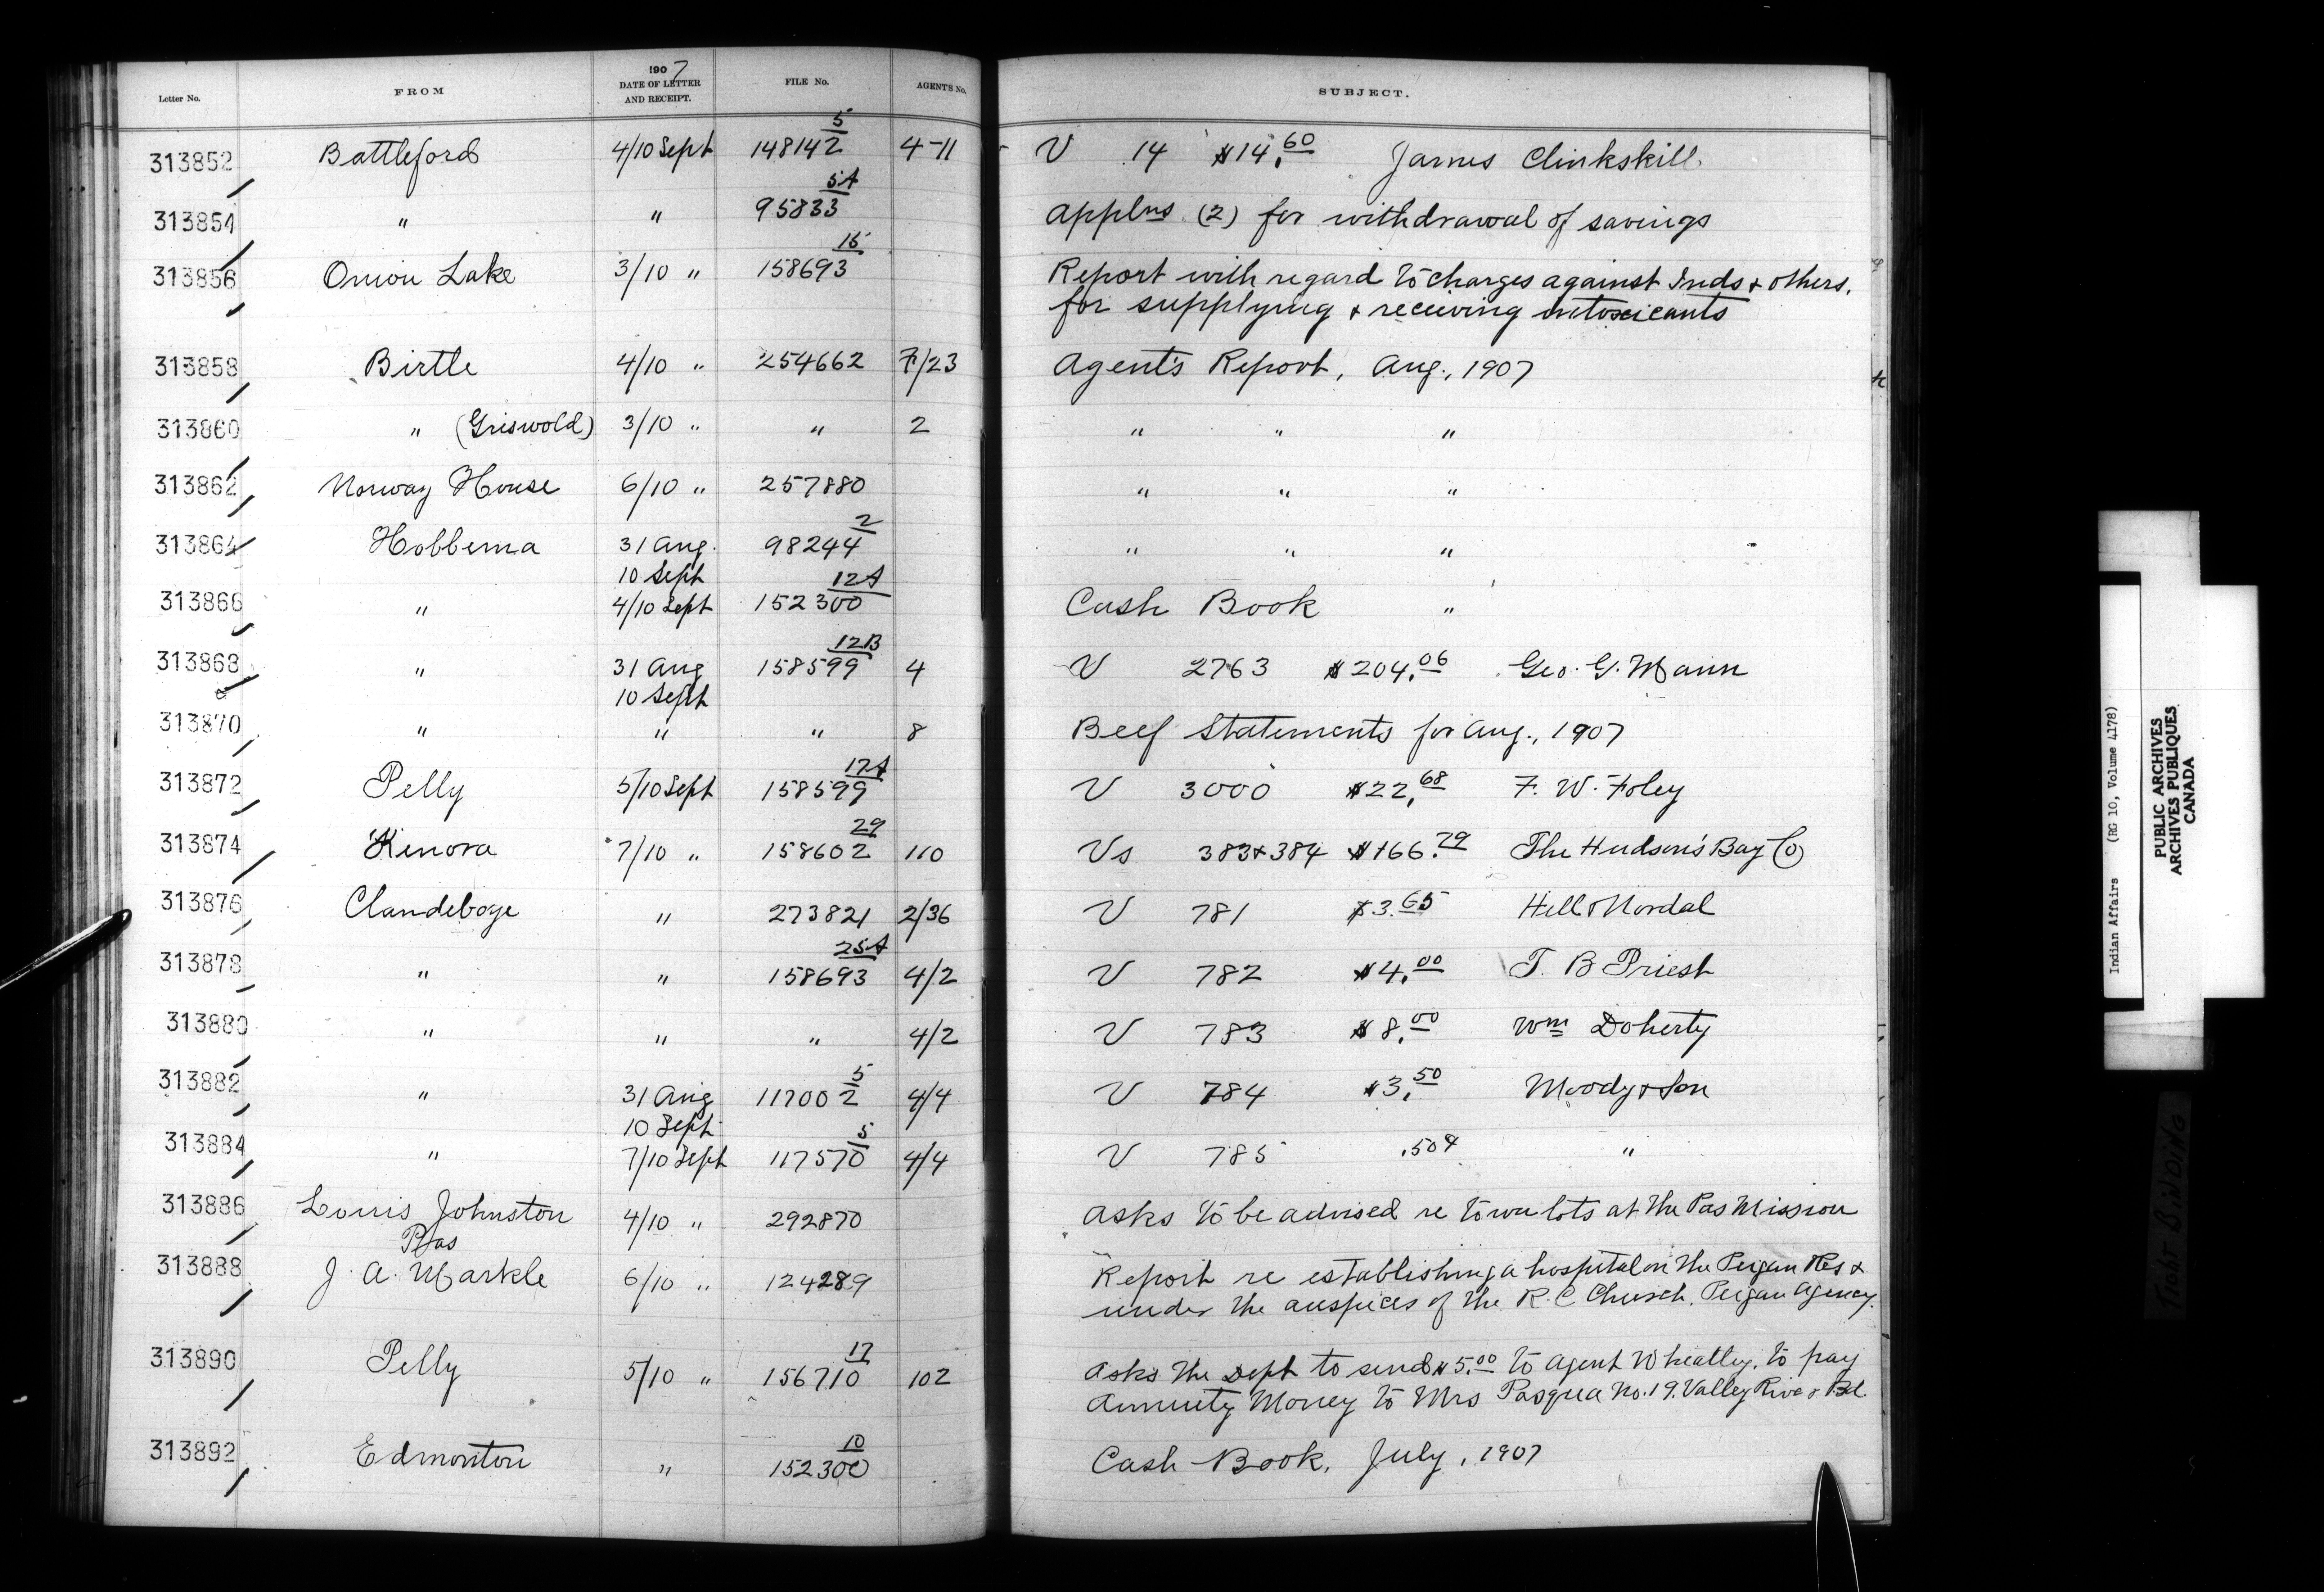 Letter No. FROM 1907 DATE OF LETTER AND RECEIPT. FILE No. AGENT'S No. SUBJECT.
313852 Battleford 4/10 Sept 148142 5 4-11 V 14 $14.60 James Clinkskill.
313854 " " 95833 5A Applns (2) for withdrawal of savings
313856 Onion Lake 3/10 " 158693 15 Report with regard to charges against Inds & others.
for supplying & receiving intoxicants
313858 Birtle 4/10 " 254662 7/23 Agent's Report, Aug., 1907
313860 " (Griswold) 3/10 " " 2 " " "
313862 Norway House 6/10 " 257880 " " "
313864 Hobbema 31 Aug. 98244 2 " " "
10 Sept
313866 " 4/10 Sept 152300 12A Cash Book "
313868 " 31 Aug 158599 12B 4 V 2763 $204.06 Geo. G. Mann
10 Sept
313870 " " " 8 Beef Statements for Aug., 1907
313872 Pelly 5/10 Sept 158599 17A V 3000 $22.68 F. W. Foley
313874 Kenora 7/10 " 158602 29 110 Vs 383 & 384 $166.79 The Hudson's Bay Co
313876 Clandeboye " 273821 2/36 V 781 $3.65 Hill & Nordal
313878 " " 158693 25A 4/2 V 782 $4.00 T. B Priest
313880 " " " 4/2 V 783 $8.00 Wm Doherty
313882 " 31 Aug 117002 5 4/4 V 784 $3.50 Moody & Son
10 Sept
313884 " 7/10 Sept 117570 5 4/4 V 785 .50¢ "
313886 Louis Johnston 4/10 " 292870 Asks to be advised re town lots at The Pas Mission
Pas
313888 J. A. Markle 6/10 " 124289 Report re establishing a hospital on the Peigan Res &
under the auspices of the R. C Church. Peigan Agency.
313890 Pelly 5/10 " 156710 17 102 Asks the Dept to send $5.00 to Agent Wheatley, to pay
Annuity Money to Mrs Pasqua No. 19. Valley River Bd.
313892 Edmonton " 152300 10 Cash Book, July, 1907
Indian Affairs (RG 10, Volume 4178)
PUBLIC ARCHIVES
ARCHIVES PUBLIQUES
CANADA
TIGHT BINDING